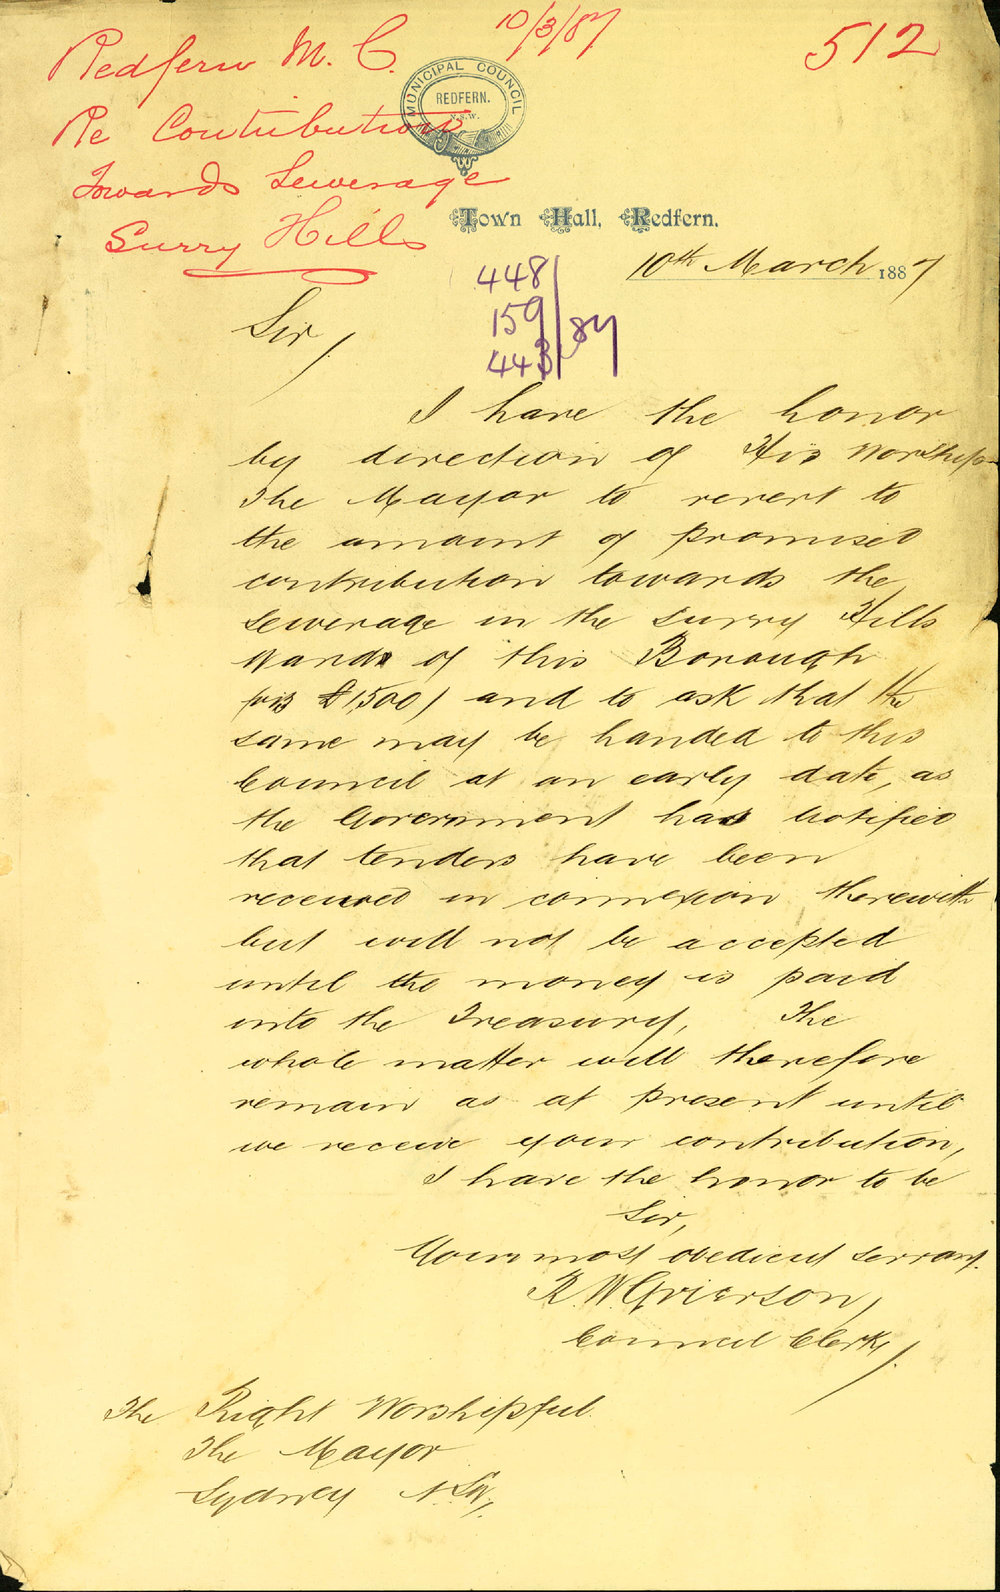 10/3/87
512
Redfern M. C.
Re Contribution
Towards Sewerage
Surry Hills
MUNICIPAL COUNCIL
REDFERN.
N.S.W.
Town Hall, Redfern.
10th March 1887
448
159 /87
443
Sir,
I have the honor
by direction of His Worship
The Mayor to revert to
the amount of promised
contribution towards the
sewerage in the Surry Hills
Ward of this Borough
(viz £1,500) and to ask that the
same may be handed to this
Council at an early date, as
the Government has notified
that tenders have been
received in connexion therewith
but will not be accepted
until the money is paid
into the Treasury, The
whole matter will therefore
remain as at present until
we receive your contribution,
I have the honor to be
Sir,
Your most obedient servant.
R. W. Grierson,
Council Clerk,
The Right Worshipful
The Mayor
Sydney N.S.W,